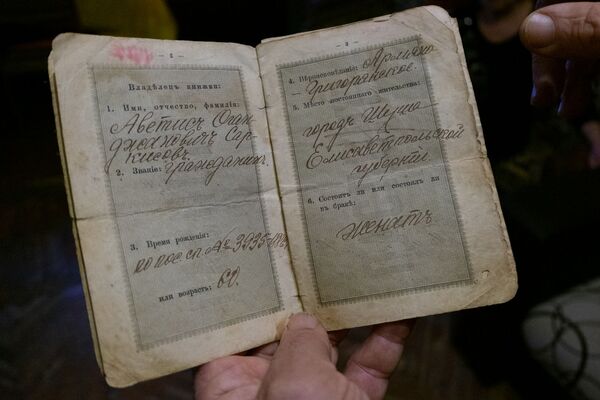 — 2 —
Владѣлецъ книжки:
1. Имя, отчество, фамилія:
Аветисъ Оган-
джановичъ Сар-
кисовъ.
2. Званіе: гражданинъ.
3. Время рожденія:
по пос. сп. №
или возрастъ: 60.
— 3 —
4. Вѣроисповѣданіе: Армяно
Григоріанское.
5. Мѣсто постояннаго жительства:
городъ Шуша
Елисаветпольской
губерніи.
6. Состоитъ ли или состоялъ ли
въ бракѣ:
женатъ